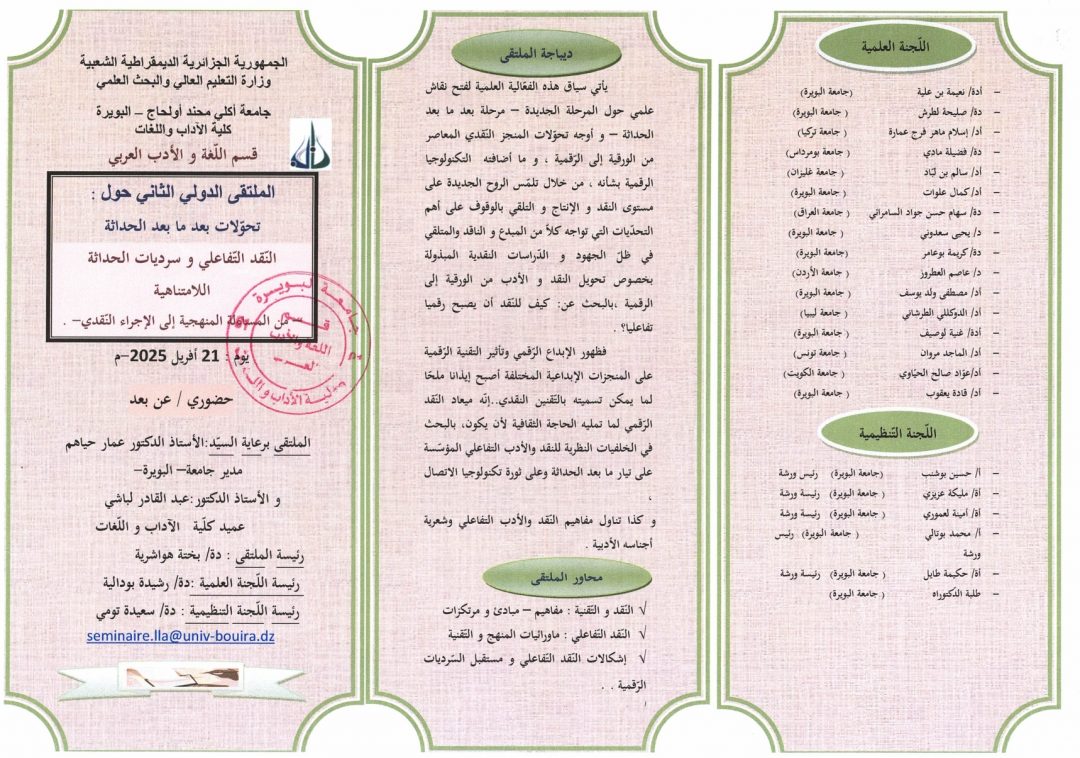 الجمهورية الجزائرية الديمقراطية الشعبية
وزارة التعليم العالي والبحث العلمي
جامعة أكلي محند أولحاج – البويرة
كلية الآداب واللغات
قسم اللّغة و الأدب العربي
الملتقى الدولي الثاني حول :
تحوّلات بعد ما بعد الحداثة
النّقد التّفاعلي و سرديات الحداثة
اللامتناهية
– من المساءلة المنهجية إلى الإجراء النّقدي– .
يوم : 21 أفريل 2025–م
حضوري / عن بعد
الملتقى برعاية السيّد:الأستاذ الدكتور عمار حياهم
مدير جامعة– البويرة–
و الأستاذ الدكتور:عبد القادر لباشي
عميد كلّية الآداب و اللّغات
رئيسة الملتقى : دة/ بختة هواشرية
رئيسة اللّجنة العلمية :دة/ رشيدة بودالية
رئيسة اللّجنة التنظيمية : دة/ سعيدة تومي
seminaire.lla@univ-bouira.dz
جامعة البويرة
قسم
اللغة والأدب
كلية الآداب و اللغات
ديباجة الملتقى
يأتي سياق هذه الفعّالية العلمية لفتح نقاش
علمي حول المرحلة الجديدة – مرحلة بعد ما بعد
الحداثة – و أوجه تحوّلات المنجز النّقدي المعاصر
من الورقية إلى الرّقمية ، و ما اضافته التكنولوجيا
الرقمية بشأنه ، من خلال تلمّس الروح الجديدة على
مستوى النقد و الإنتاج و التلقي بالوقوف على أهم
التحدّيات التي تواجه كلاّ من المبدع و الناقد والمتلقي
في ظلّ الجهود و الدّراسات النقدية المبذولة
بخصوص تحويل النقد و الأدب من الورقية إلى
الرقمية ،بالبحث عن: كيف للنّقد أن يصبح رقميا
تفاعليا؟ .
فظهور الإبداع الرّقمي وتأثير التقنية الرّقمية
على المنجزات الإبداعية المختلفة أصبح إيذانا ملحّا
لما يمكن تسميته بالتّقنين النقدي..إنّه ميعاد النّقد
الرّقمي لما تمليه الحاجة الثقافية لأن يكون، بالبحث
في الخلفيات النظرية للنقد والأدب التفاعلي المؤسّسة
على تيار ما بعد الحداثة وعلى ثورة تكنولوجيا الاتصال
،
و كذا تناول مفاهيم النّقد والأدب التفاعلي وشعرية
أجناسه الأدبية .
محاور الملتقى
√ النّقد و التّقنية : مفاهيم – مبادئ و مرتكزات
√ النّقد التّفاعلي : ماورائيات المنهج و التّقنية
√ إشكالات النّقد التّفاعلي و مستقبل السّرديات
الرّقمية . .
اللّجنة العلمية
– أدة/ نعيمة بن علية (جامعة البويرة)
– دة/ صليحة لطرش ( جامعة البويرة)
– أد/ إسلام ماهر فرج عمارة ( جامعة تركيا)
– دة/ فضيلة مادي ( جامعة بومرداس)
– أد/ سالم بن لبّاد ( جامعة غليزان)
– أد/ كمال علوات ( جامعة البويرة)
– دة/ سهام حسن جواد السامرائي ( جامعة العراق)
– د/ يحيى سعدوني ( جامعة البويرة)
– دة/ كريمة بوعامر ( جامعة البويرة)
– د/ عاصم العطروز ( جامعة الأردن)
– أد/ مصطفى ولد يوسف ( جامعة البويرة)
– أد/ الدوكلّلي الطرشاني ( جامعة ليبيا)
– أدة/ غنية لوصيف ( جامعة البويرة)
– أد/ الماجد مروان ( جامعة تونس)
– أد/عوّاد صالح الحيّاوي ( جامعة الكويت)
– أد/ قادة يعقوب ( جامعة البويرة)
اللّجنة التّنظيمية
– أ/ حسين بوشنب (جامعة البويرة) رئيس ورشة
– أة/ مليكة عزيزي ( جامعة البويرة) رئيسة ورشة
– أة/ أمينة لعموري ( جامعة البويرة) رئيسة ورشة
– أ/ محمد بوتالي ( جامعة البويرة) رئيس
ورشة
– أة/ حكيمة طايل ( جامعة البويرة) رئيسة ورشة
– طلبة الدّكتوراه ( جامعة البويرة)